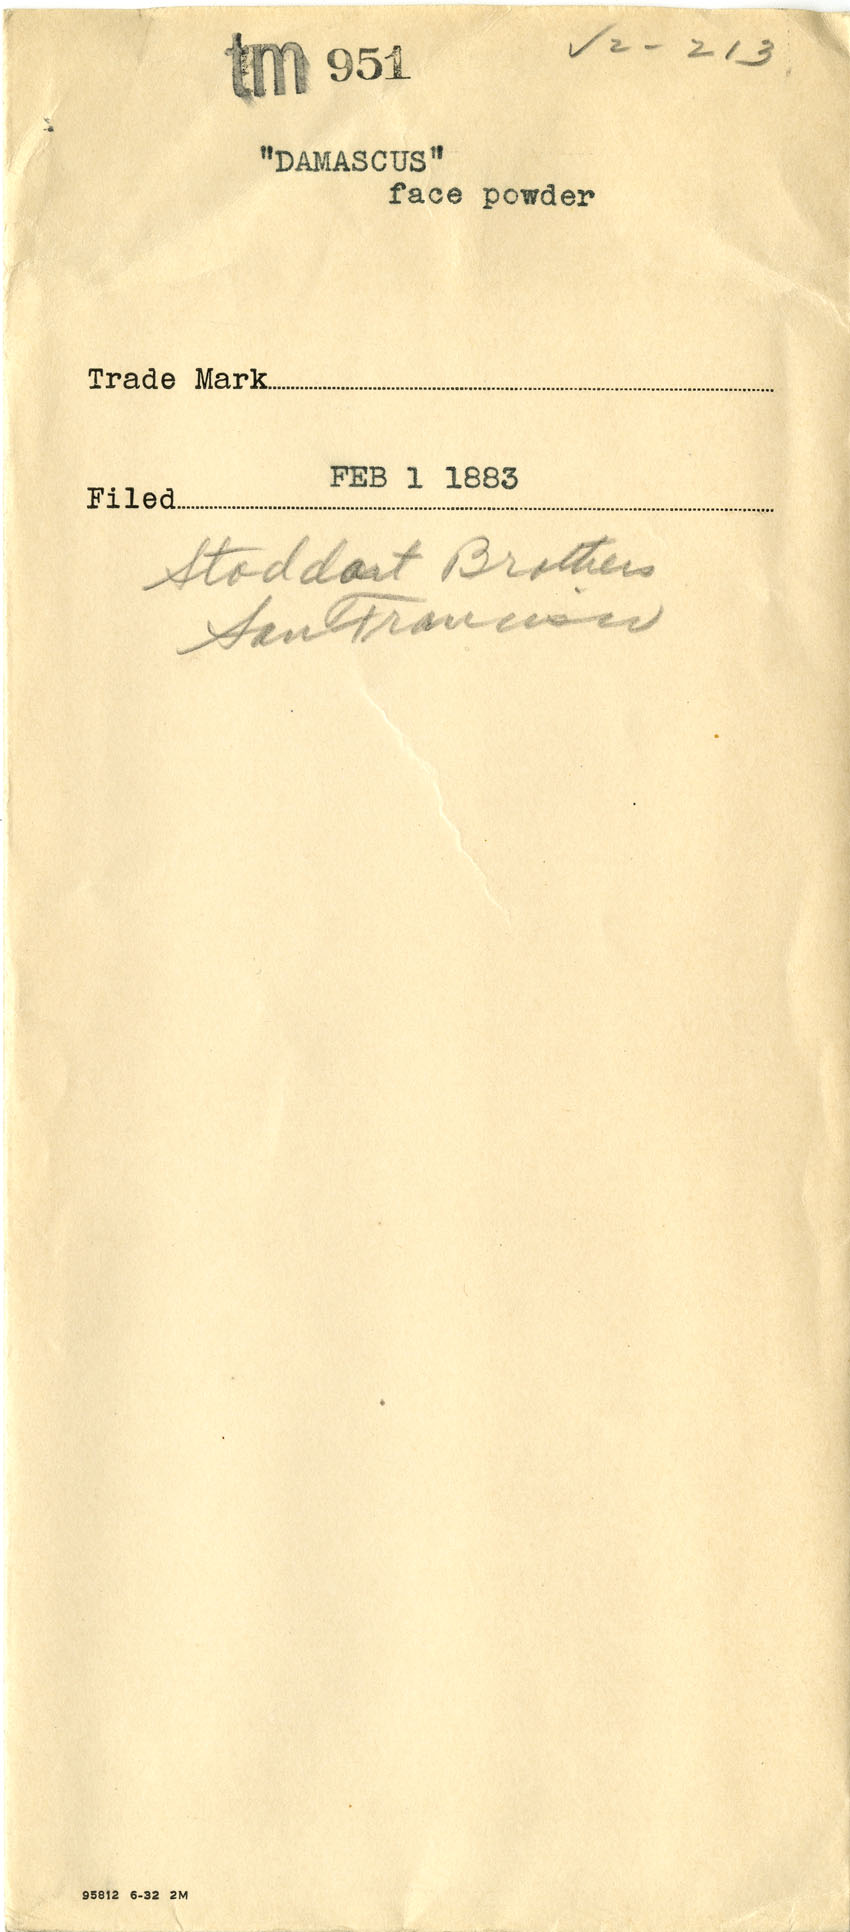 tm 951
√2-213
"DAMASCUS"
face powder
Trade Mark
FEB 1 1883
Filed
Stoddart Brothers
San Francisco
95812 6-32 2M